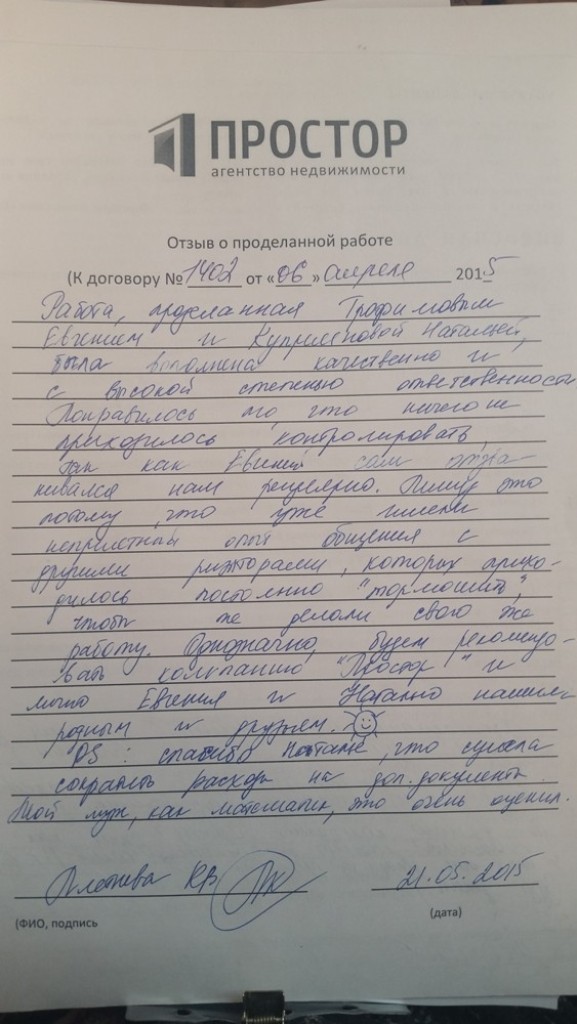 ПРОСТОР
агентство недвижимости
Отзыв о проделанной работе
(К договору № 1402 от «06» апреля 2015
Работа, проделанная Трофимовым
Евгением и Наталией,
была выполнена качественно и
с высокой степенью ответственности
Понравилось то что ничего не
приходилось контролировать
так как Евгений сам отзва
нивался нам регулярно. Пишу это
потому что уже имели
неприятный опыт общения с
другими риэлторами, которых прихо-
дилось постоянно "тормошить",
чтобы те делали свою же
работу. Однозначно будем рекомендо-
вать компанию "Простор" и
лично Евгения и Наталью нашим
родным и друзьям.
PS: спасибо Наталье, что сумела
сократить расходы на доп. документы.
Мой муж, как математик, это очень оценил.
КВ 21.05.2015
(ФИО, подпись (дата)